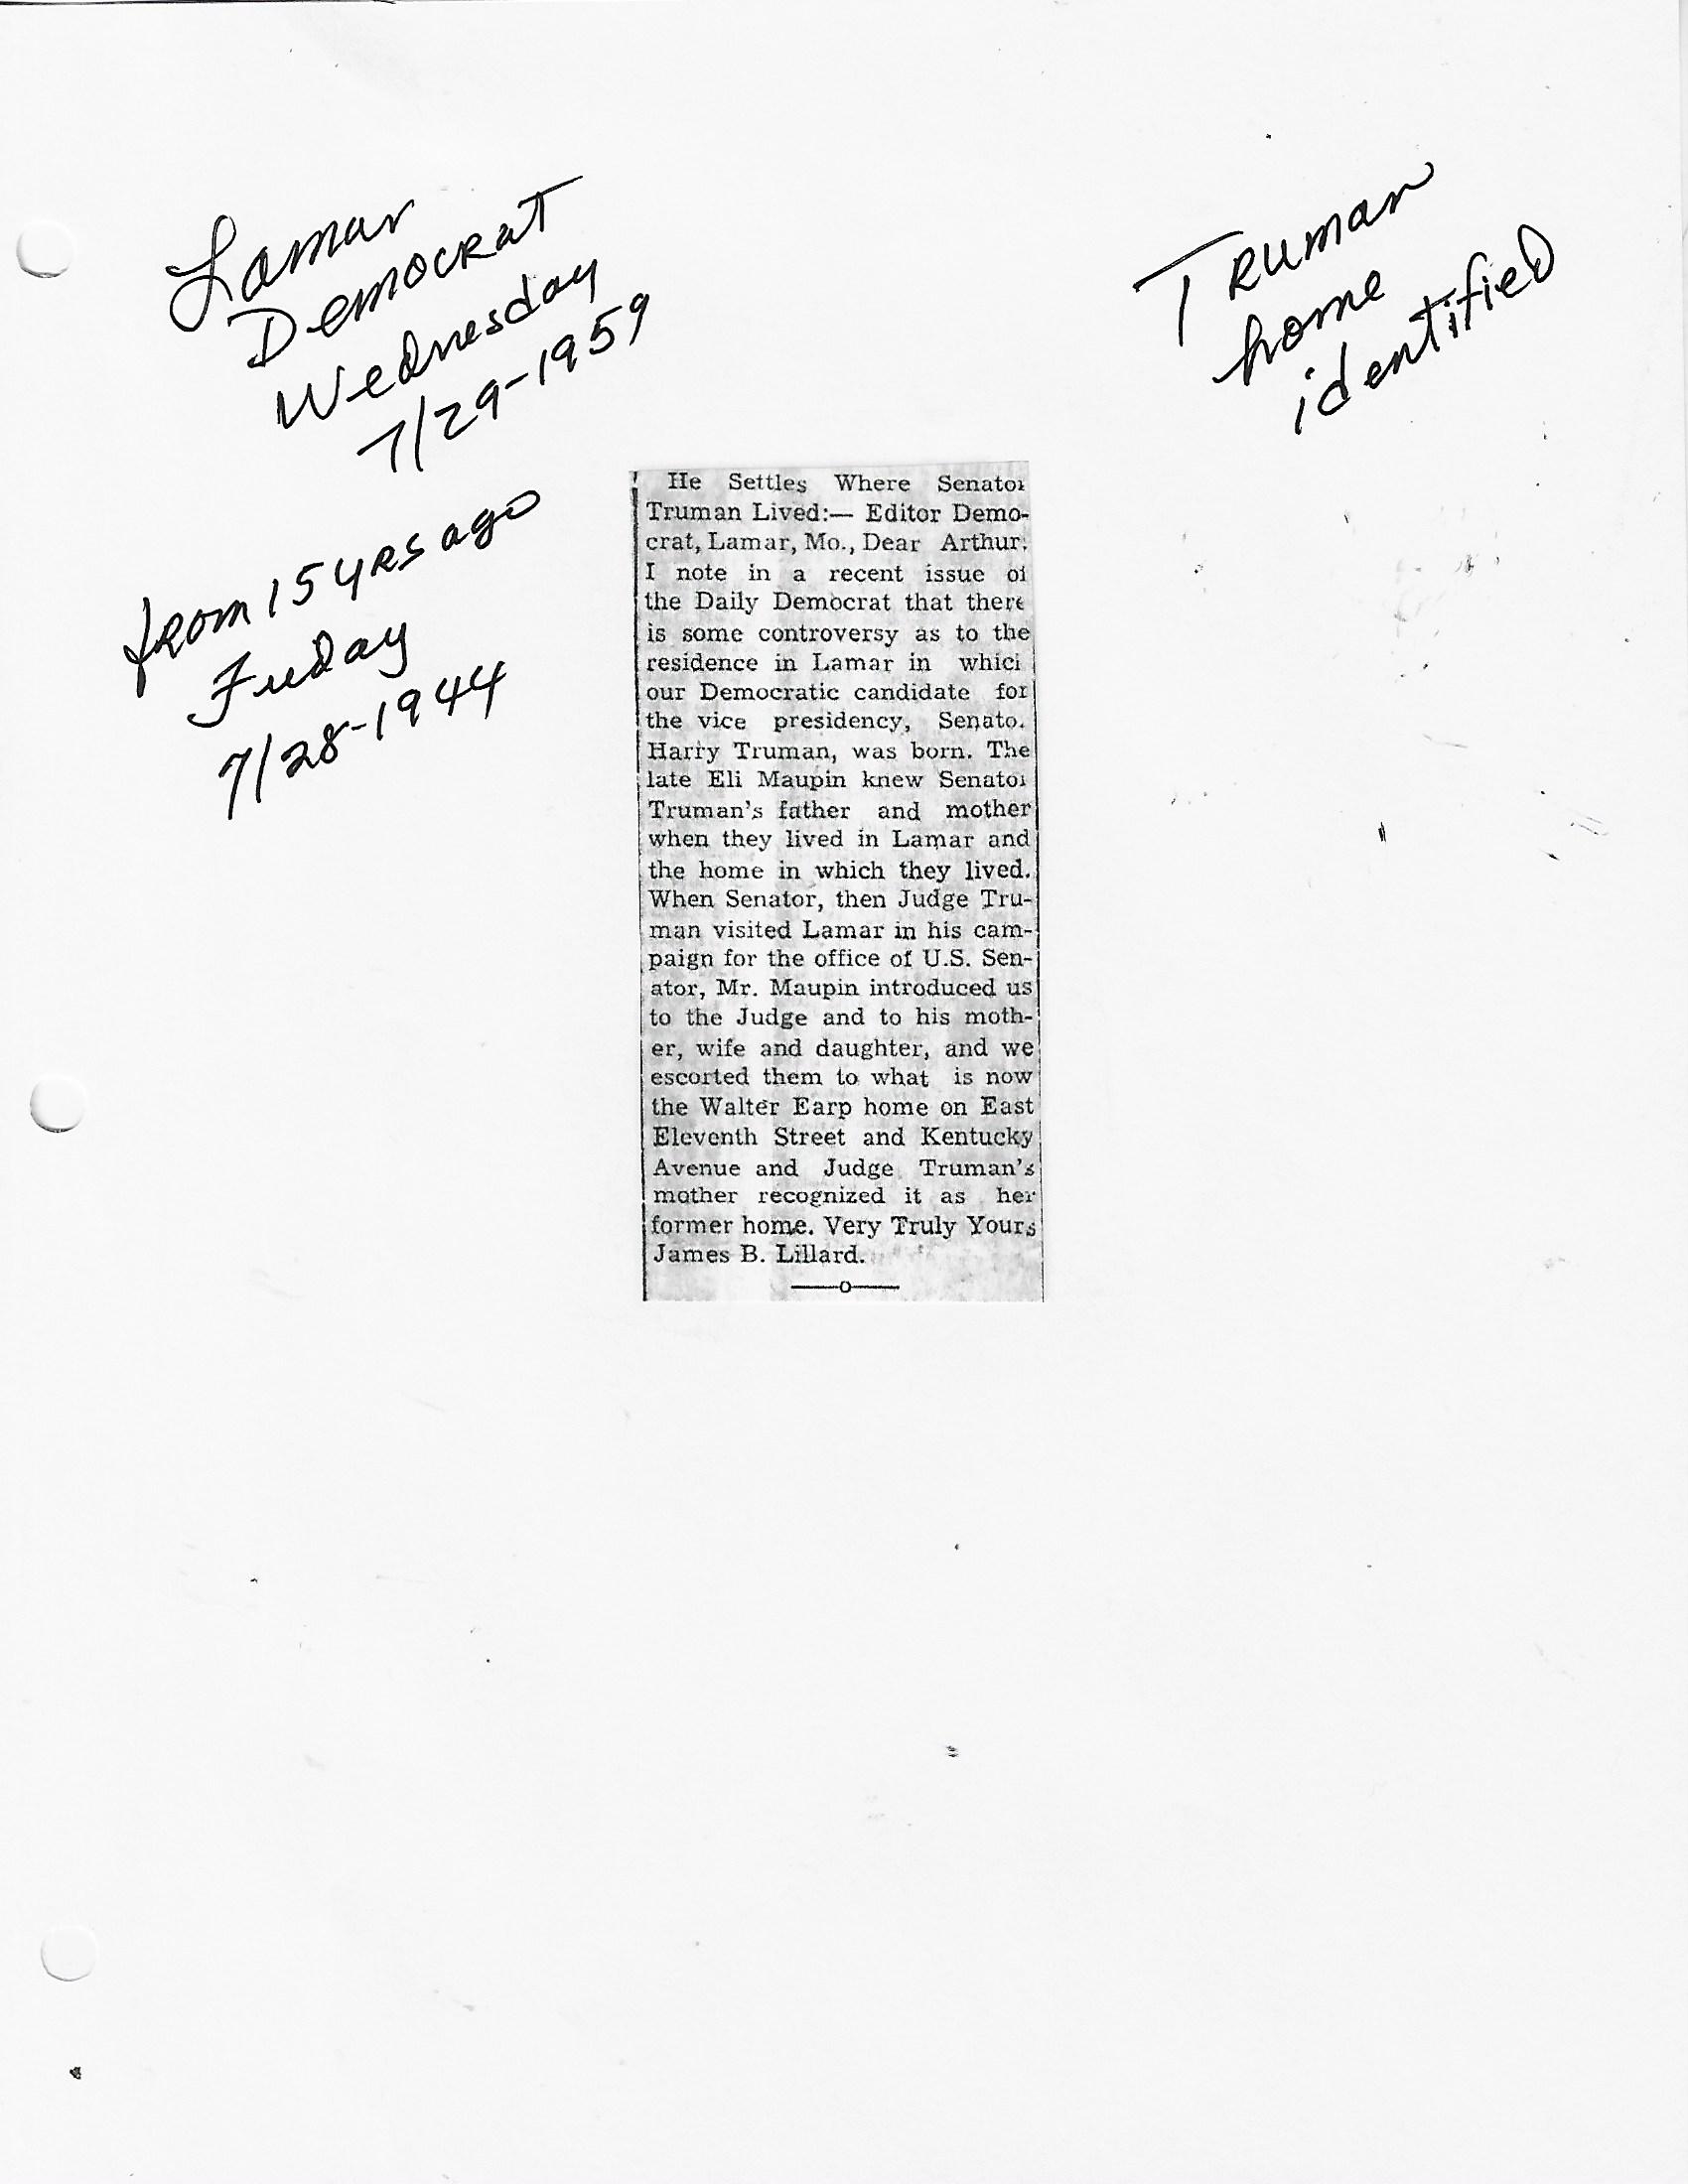 Lamar
Democrat
Wednesday
7/29-1959
from 15 yrs ago
Friday
7/28-1944
Truman
home
identified
He Settles Where Senator
Truman Lived:— Editor Demo-
crat, Lamar, Mo., Dear Arthur:
I note in a recent issue of
the Daily Democrat that there
is some controversy as to the
residence in Lamar in which
our Democratic candidate for
the vice presidency, Senato.
Harry Truman, was born. The
late Eli Maupin knew Senator
Truman's father and mother
when they lived in Lamar and
the home in which they lived.
When Senator, then Judge Tru-
man visited Lamar in his cam-
paign for the office of U.S. Sen-
ator, Mr. Maupin introduced us
to the Judge and to his moth-
er, wife and daughter, and we
escorted them to what is now
the Walter Earp home on East
Eleventh Street and Kentucky
Avenue and Judge Truman's
mother recognized it as her
former home. Very Truly Yours
James B. Lillard.
——o——